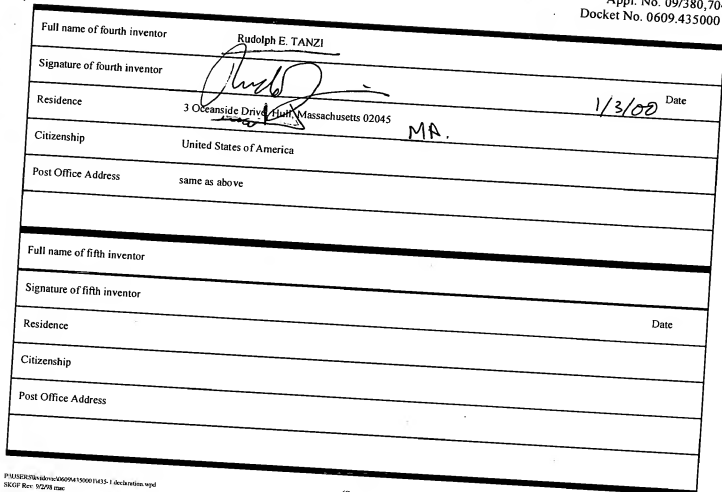 Appl. No. 09/380,704
Docket No. 0609.435000
Full name of fourth inventor Rudolph E. TANZI
Signature of fourth inventor
1/3/00 Date
Residence 3 Oceanside Drive, Hull, Massachusetts 02045 MA.
Citizenship United States of America
Post Office Address same as above
Full name of fifth inventor
Signature of fifth inventor
Date
Residence
Citizenship
Post Office Address
SKGF Rev 9/2/98 mac